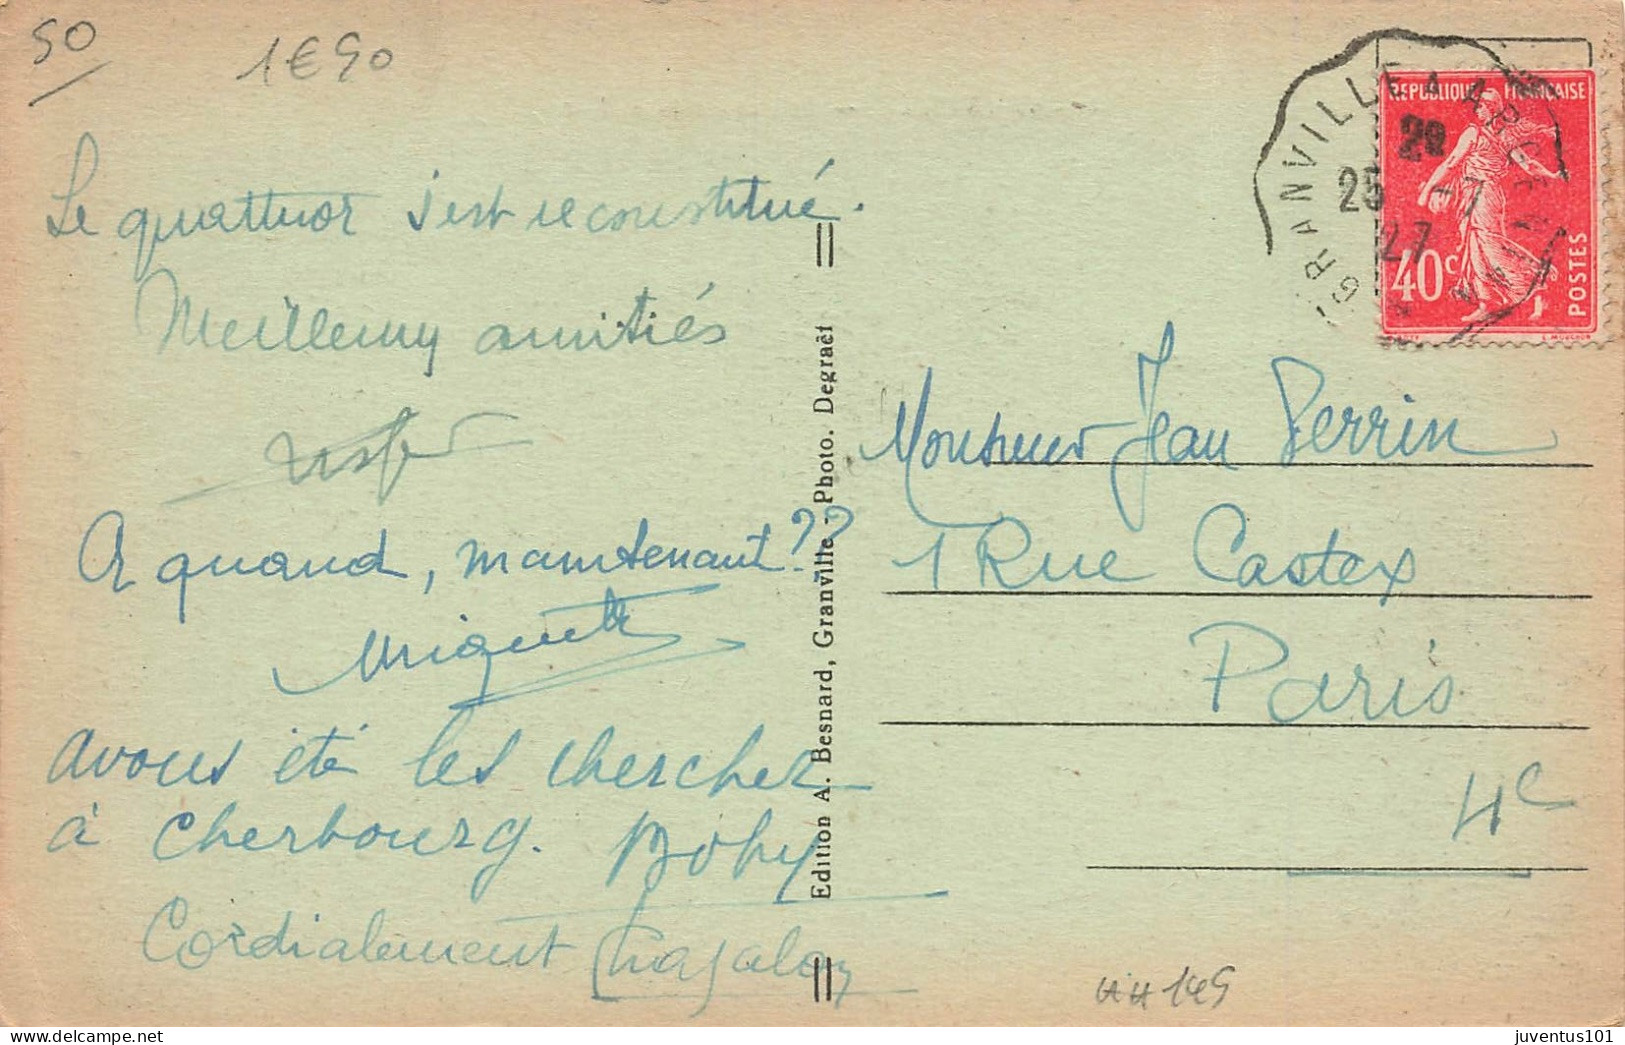 50
1€90
Le quattuor s'est reconstitué.
Meilleures amitiés
A quand, maintenant??
Miquette
avons été les chercher
à Cherbourg. Boby
Cordialement Chagalon
Edition A. Besnard, Granville - Photo. Degraët
GRANVILLE A ARGENTAN
2e
25 -7
27
REPUBLIQUE FRANCAISE
40c
POSTES
Monsieur Jean Perrin
1 Rue Castex
Paris
4e
149
juventus101